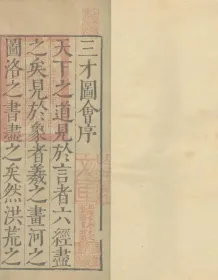 三才圖會序
天下之道見於言者六經盡
之矣見於象者羲之畫河之
圖洛之書盡之矣然洪荒之